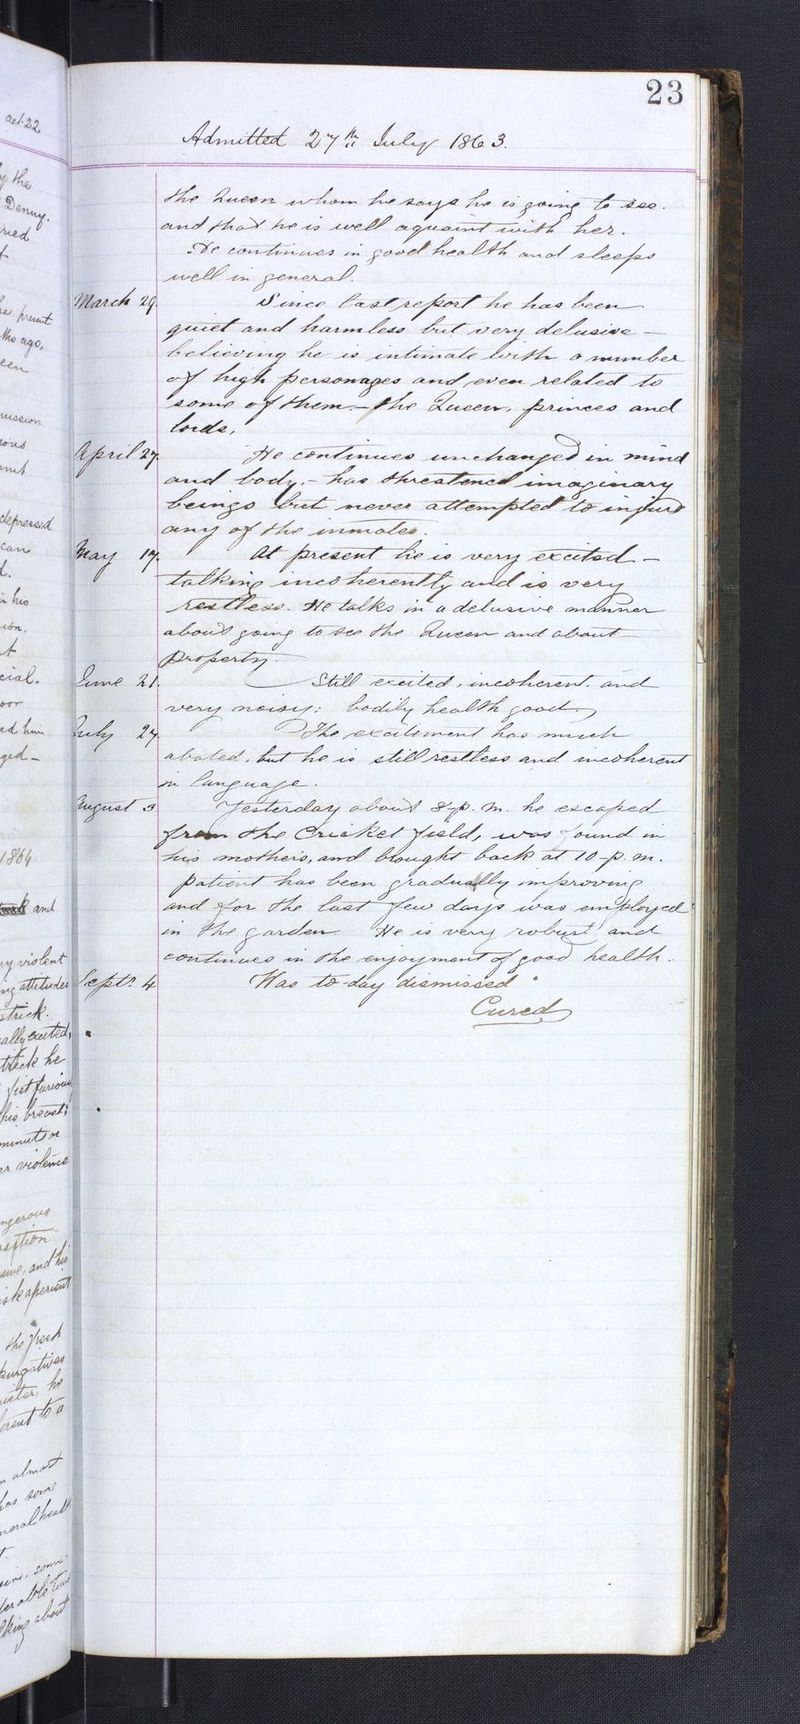 23
Admitted 27th July 1863.
the Queen whom he says he is going to see.
and that he is well aquaint with her.
He continues in good health and sleeps
well in general.
March 29. Since last report he has been
quiet and harmless but very delusive —
believing he is intimate with a number
of high personages and even related to
some of them — the Queen, princes and
lords.
April 27. He continues unchanged in mind
and body, — has threatened imaginary
beings but never attempted to injure
any of the inmates.
May 17. At present he is very excited —
talking incoherently and is very
restless. He talks in a delusive manner
about going to see the Queen and about
property.
June 21. Still excited, incoherent and
very noisy: bodily health good.
July 27. The excitement has much
abated, but he is still restless and incoherent
in language.
August 3 Yesterday about 8-p.m. he escaped
from the Cricket field, was found in
his mothers, and brought back at 10-p.m.
Patient has been gradually improving
and for the last few days was employed
in the garden He is very robust and
continues in the enjoyment of good health.
Septr. 4 Was to-day dismissed
Cured
aet 22
by the
Denny.
ago,
depressed
his
1864
and
violent
attitudes
strick.
he
his breast:
minutes
violence
and his
aperient
the
to a
almost
has some
about